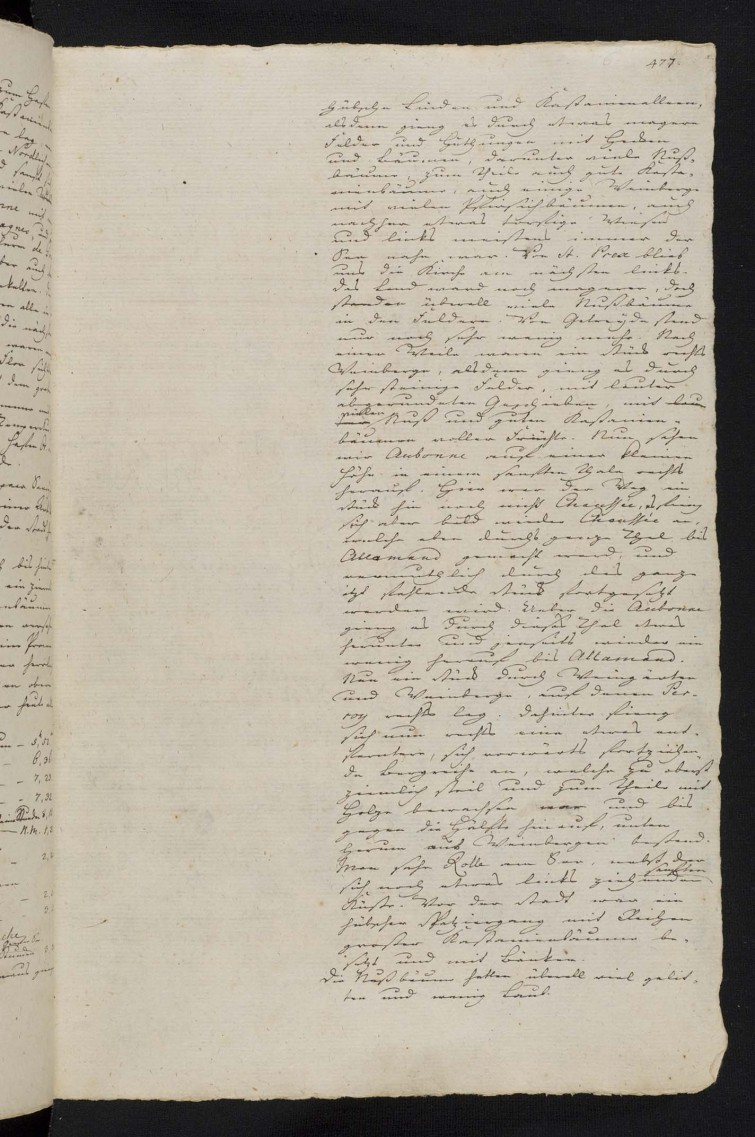 477.
hübsche Linden und Kastanienalleen,
alsdann gieng es durch etwas magere
Felder und Hüthungen mit Hecken
und Bäumen, darunter viele Nuß-
bäume, zum Theil auch gute Kasta-
nienbäume, auch einige Weinberge
mit vielen Pfirsichbäumen, auch
nachher etwas torfige Wiesen
und links meistens immer der
See nahe war. Von St. Prex blieb
uns die Kirche am nächsten links.
Das Land ward noch magerer, doch
standen überall viele Nußbäume
in den Feldern. Von Getreyde stand
nur noch sehr wenig mehr. Nach
einer Weile waren ein Stück rechts
Weinberge, alsdann gieng es durch
sehr steinige Felder, mit lauter
abgerundeten Geschieben, mit
vielen Nuß und guten Kastanien-
bäumen voller Früchte. Nun sahen
wir Aubonne auf einer kleinen
Höhe in einem sanften Thale rechts
herauf. Hier war der Weg ein
Stück hin noch nicht Chaussée, es fieng
sich aber bald wieder Chaussée an,
welche eben durchs ganze Thal bis
Allamand gemacht ward, und
vermuthlich durch das ganze
itzt fehlende Stück fortgesetzt
werden wird. Ueber die Aubonne
gieng es durch dieses Thal etwas
herunter und jenseits wieder ein
wenig herauf bis Allamand.
Nun ein Stück durch Weingärten
und Weinberge, auf denen Per-
roy rechts lag. Dahinter fieng
sich nun rechts eine etwas ent-
ferntere, sich vorwärts fortziehen-
de Bergreihe an, welche zu oberst
ziemlich steil und zum Theile mit
Holze bewachsen war und bis
gegen die Hälfte hinauf, unten
herum aus Weinbergen bestand.
Man sahe Rolle am See, nebst der
sich noch etwas links ziehenden sanften
Küste. Vor der Stadt war ein
hübscher Spatziergang mit Reihen
grosser Kastanienbäume be-
setzt und mit Bänken.
Die Nußbäume hatten überall viel gelit-
ten und wenig Laub.